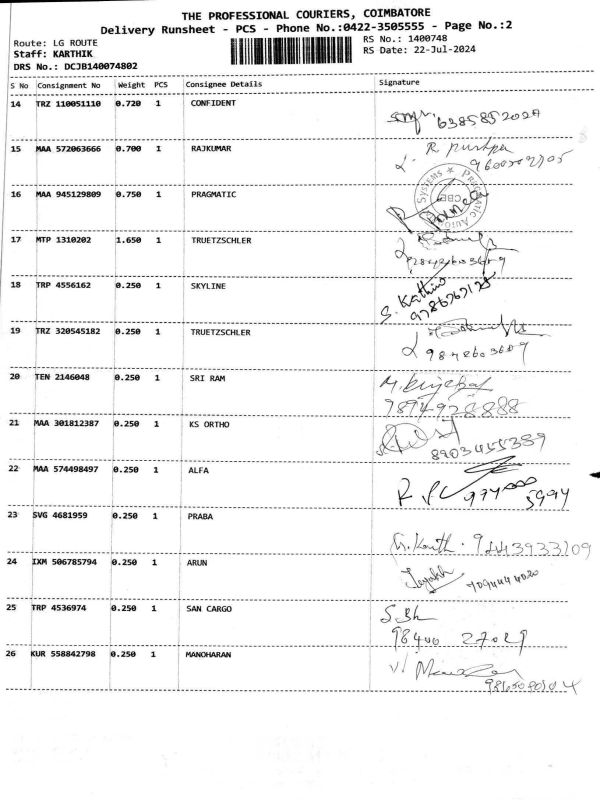 THE PROFESSIONAL COURIERS, COIMBATORE
Delivery Runsheet - PCS - Phone No.:0422-3505555 - Page No.:2
Route: LG ROUTE
RS No.: 1400748
Staff: KARTHIK
RS Date: 22-Jul-2024
DRS No.: DCJB140074802
S No Consignment No Weight PCS Consignee Details Signature
14 TRZ 110051110 0.720 1 CONFIDENT
6385852027
15 MAA 572063666 0.700 1 RAJKUMAR
R Pushpa
16 MAA 945129809 0.750 1 PRAGMATIC
SYSTEMS * PRAGMATIC AUTOM
CBE
17 MTP 1310202 1.650 1 TRUETZSCHLER
9842603609
18 TRP 4556162 0.250 1 SKYLINE
S. Kathir
19 TRZ 320545182 0.250 1 TRUETZSCHLER
9842603609
20 TEN 2146048 0.250 1 SRI RAM
9894928888
21 MAA 301812387 0.250 1 KS ORTHO
8903455389
22 MAA 574498497 0.250 1 ALFA
974000
5994
23 SVG 4681959 0.250 1 PRABA
9443933109
24 IXM 506785794 0.250 1 ARUN
7094444020
25 TRP 4536974 0.250 1 SAN CARGO
98400 27029
26 KUR 558842798 0.250 1 MANOHARAN